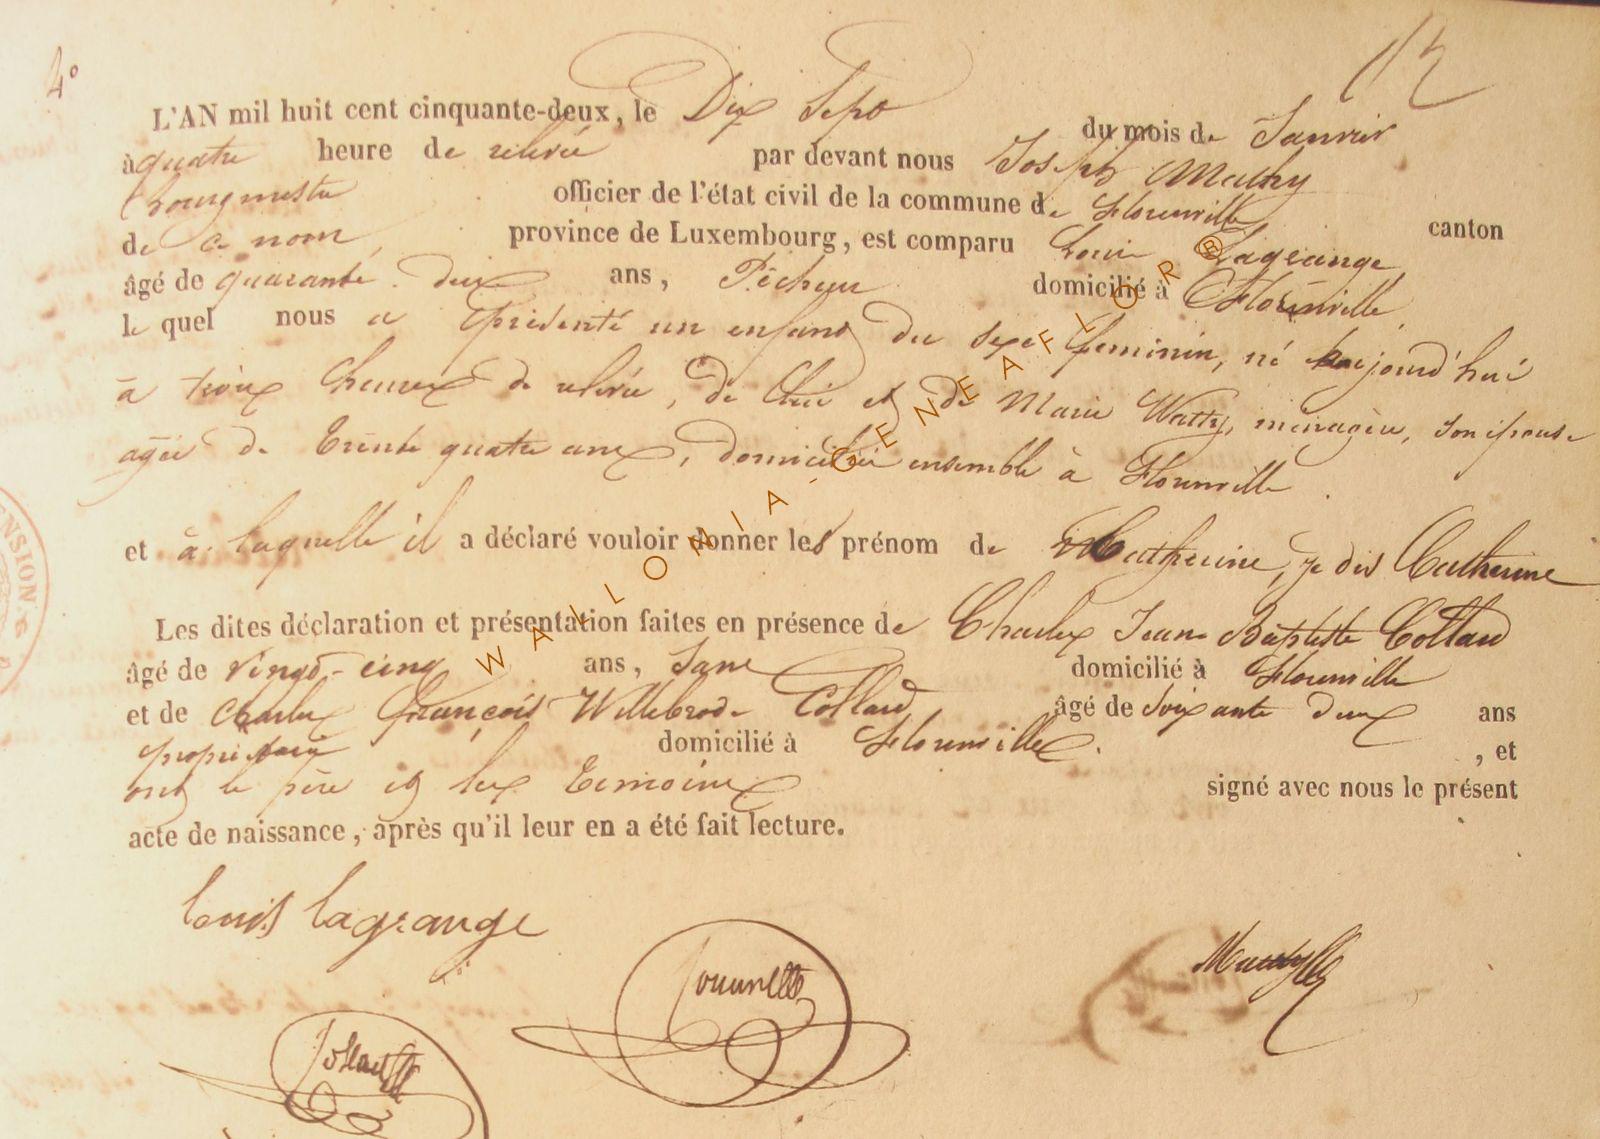 4°
L'AN mil huit cent cinquante-deux, le Dix Sept du mois de Janvier
à quatre heure de relevée par devant nous Joseph Mathy
bourgmestre officier de l'état civil de la commune de Florenville canton
de ce nom, province de Luxembourg, est comparu Louis Lagrange
âgé de quarante deux ans, Pêcheur domicilié à Florenville,
le quel nous a présenté un enfant du sexe feminin, né aujourd'hui
à trois heures de relevée, de lui et de Marie Watty, ménagère, son épouse
agée de trente quatre ans, domiciliés ensemble à Florenville.
et à laquelle il a déclaré vouloir donner les prénom de Catherine, je dis Catherine
Les dites déclaration et présentation faites en présence de Charles Jean Baptiste Collard
âgé de vingt-cinq ans, Sans domicilié à Florenville
et de Charles François Willebrode Collard, âgé de Soixante deux ans
propriétaire domicilié à Florenville. , et
ont le père et les témoins signé avec nous le présent
acte de naissance, après qu'il leur en a été fait lecture.
louis lagrange
WALLONIA-GENEAFLOR®